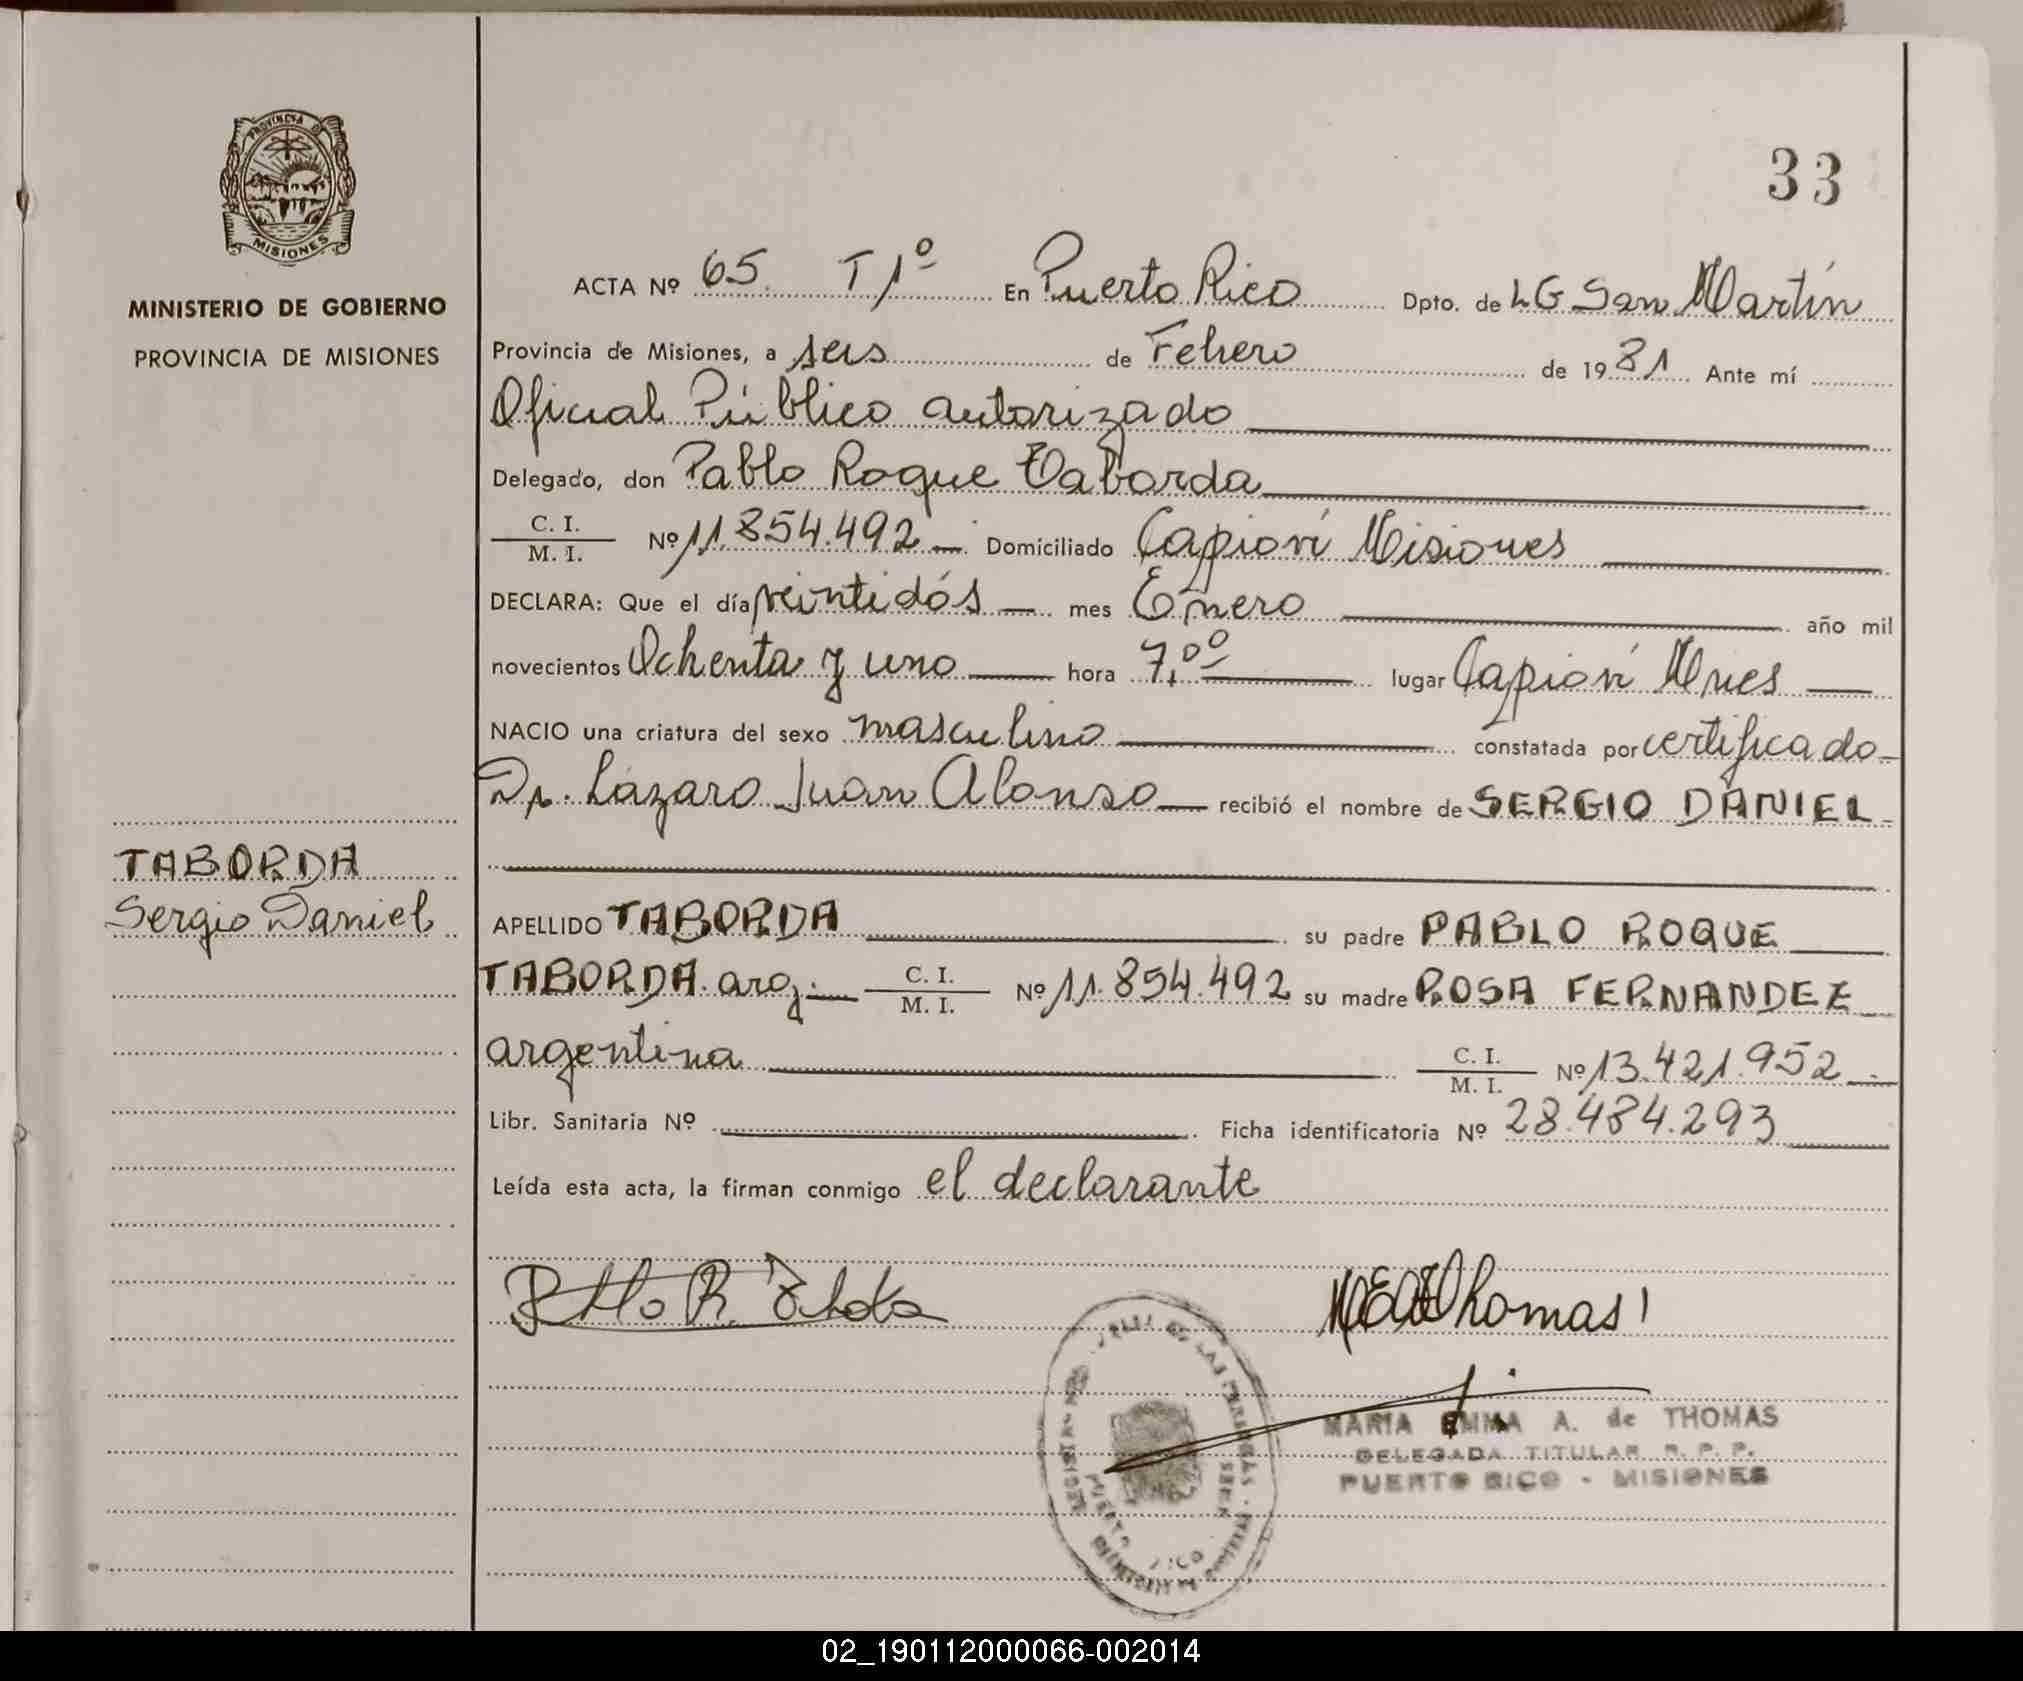 33
PROVINCIA DE
MISIONES
MINISTERIO DE GOBIERNO
PROVINCIA DE MISIONES
ACTA Nº 65. T 1º En Puerto Rico Dpto. de LG San Martín
Provincia de Misiones, a seis de Febrero de 1981 Ante mí
Oficial Público autorizado
Delegado, don Pablo Roque Taborda
C. I.
M. I. Nº 11.854.492 Domiciliado Capioví Misiones
DECLARA: Que el día veintidós mes Enero año mil
novecientos Ochenta y uno hora 7,00 lugar Capioví Mnes
NACIO una criatura del sexo masculino constatada por certificado
Dr. Lázaro Juan Alonso recibió el nombre de SERGIO DANIEL
TABORDA
Sergio Daniel
APELLIDO TABORDA su padre PABLO ROQUE
TABORDA arg. C. I. M. I. Nº 11.854.492 su madre ROSA FERNANDEZ
argentina C. I. M. I. Nº 13.421.952
Libr. Sanitaria Nº Ficha identificatoria Nº 28.484.293
Leída esta acta, la firman conmigo el declarante
MARIA EMMA A. de THOMAS
DELEGADA TITULAR R. P. P.
PUERTO RICO - MISIONES
02_190112000066-002014